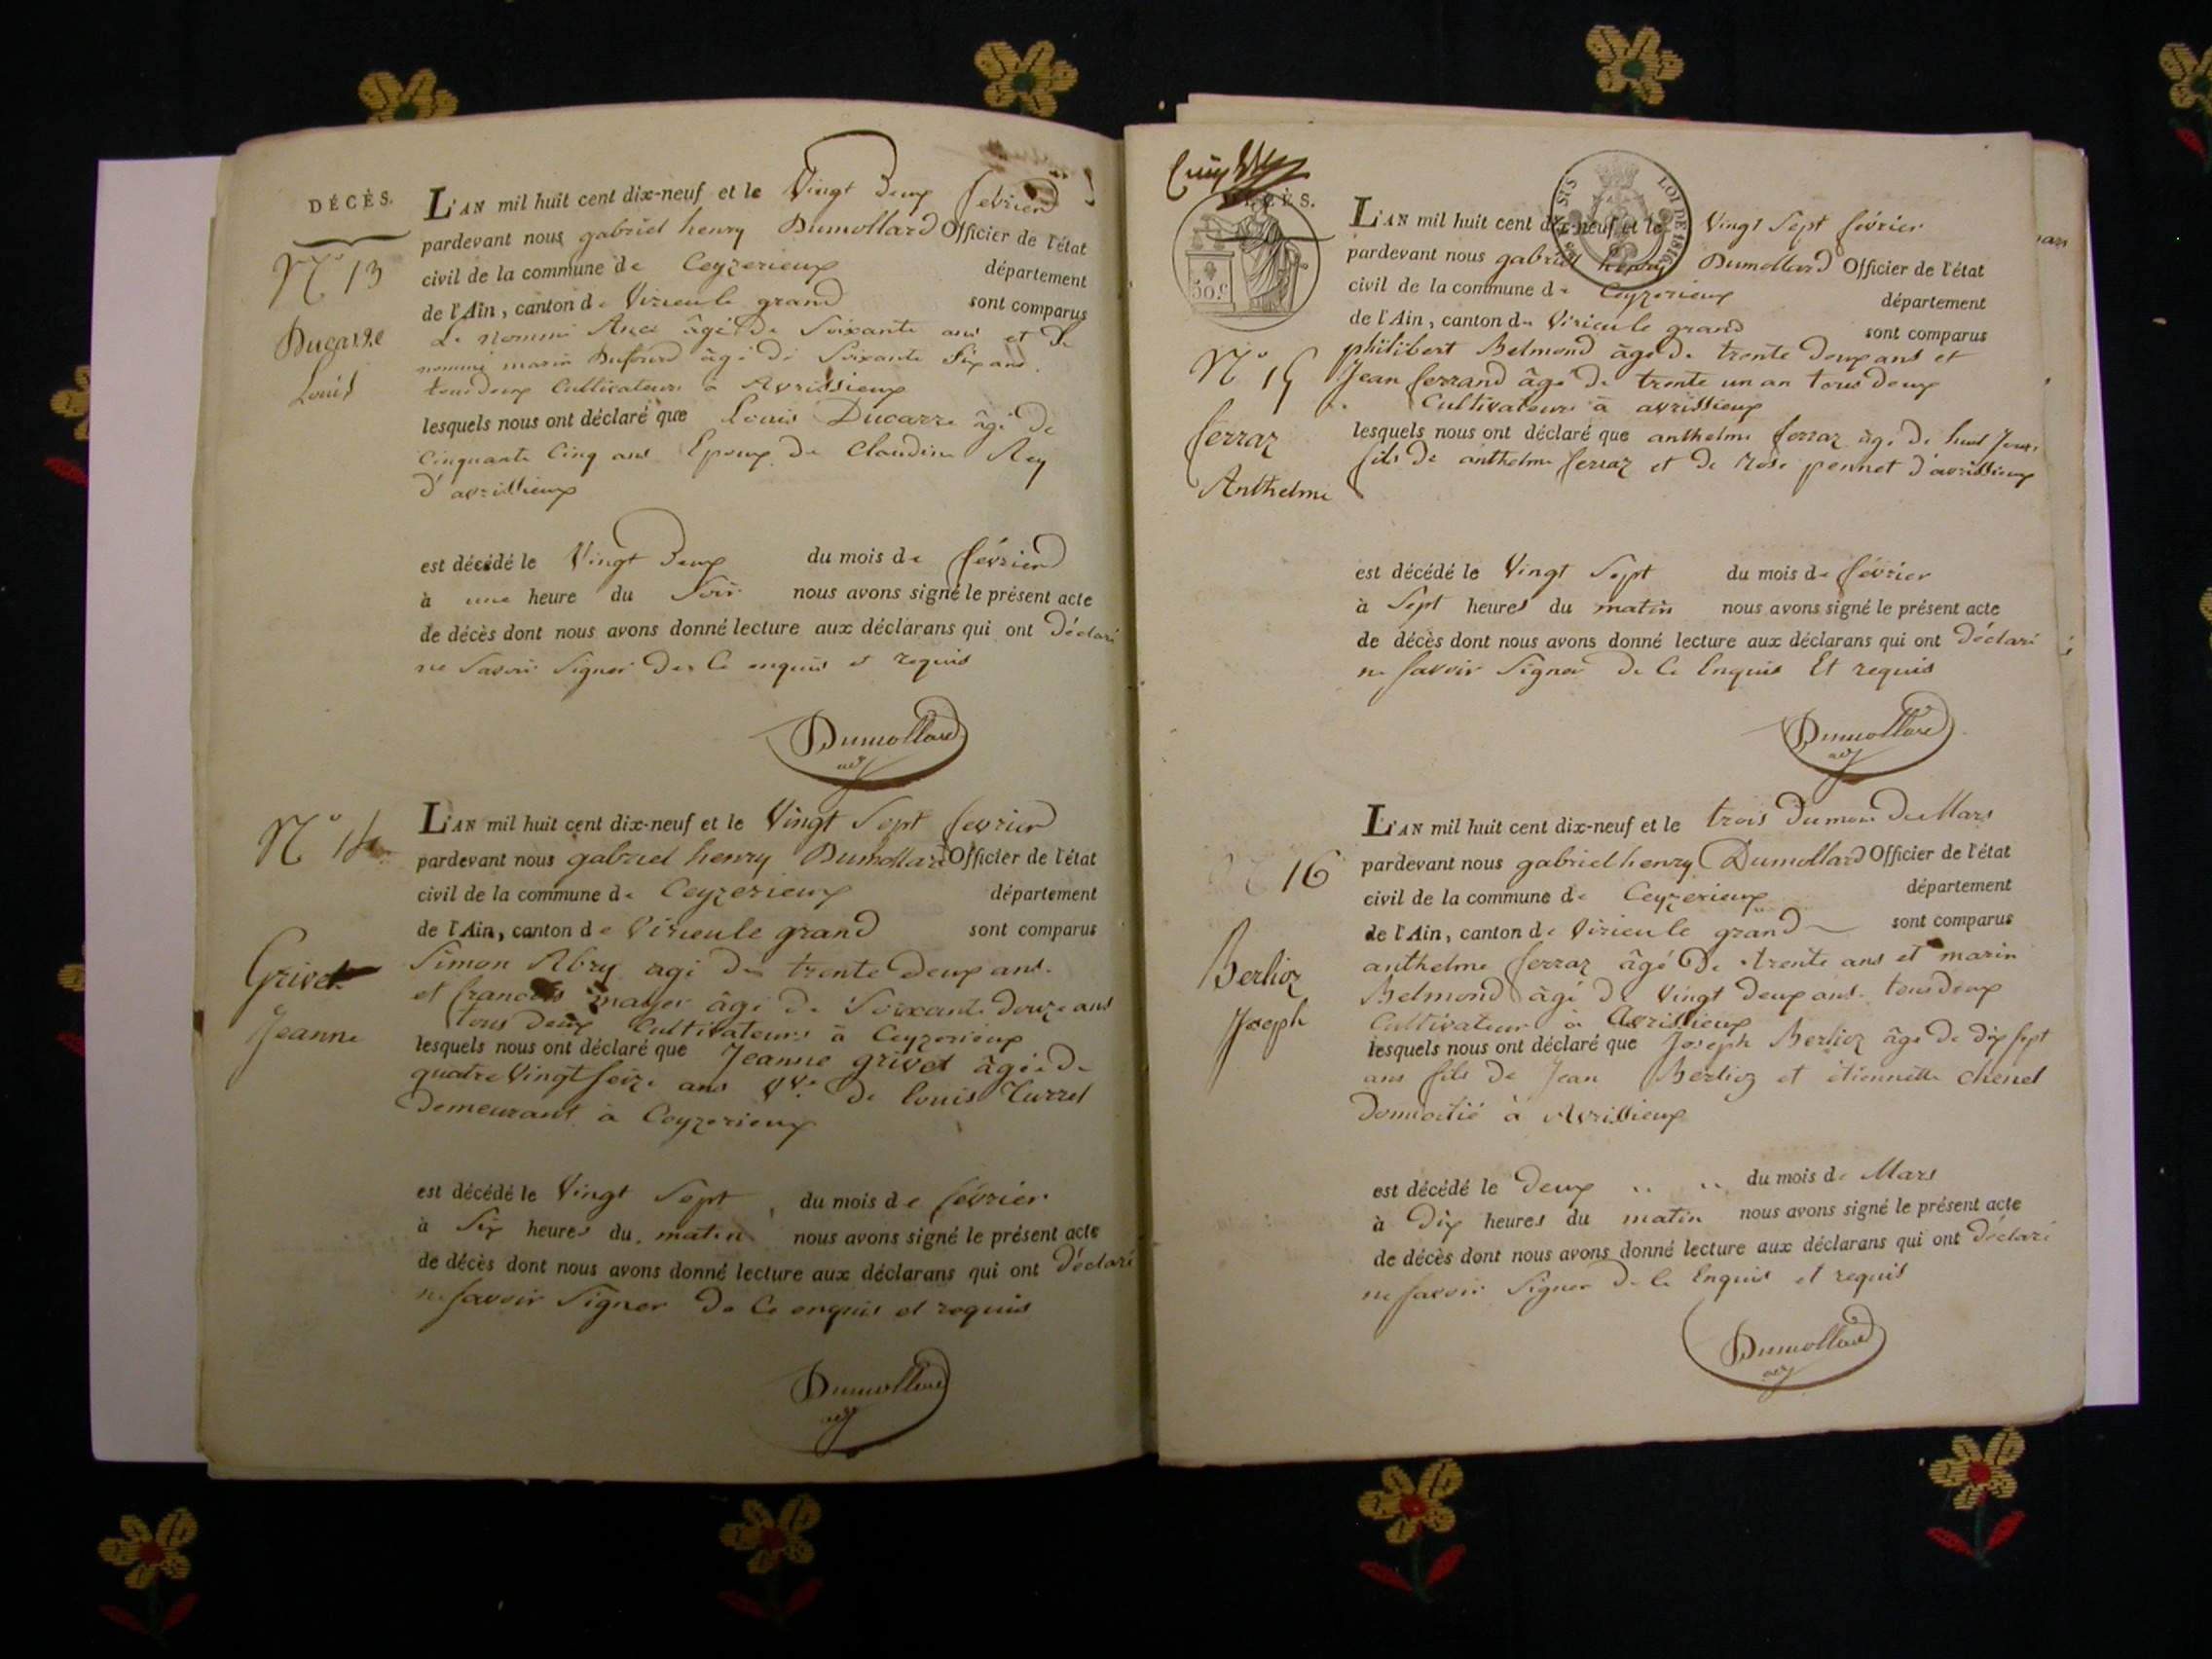 DÉCÈS.
N.° 13
Ducarre
Louis
L'AN mil huit cent dix-neuf et le Vingt Deux fevrier
pardevant nous gabriel henry Dumollard Officier de l'état
civil de la commune de Ceyzerieux département
de l'Ain, canton de Virieu le grand sont comparus
Le nommé âgé de Soixante ans et Le
nommé marin Dufourd âgé de Soixante Six ans.
tous deux Cultivateurs à Avrissieux
lesquels nous ont déclaré que Louis Ducarre âgé de
Cinquante Cinq ans Epoux de Claudine Rey
d'avrissieux
est décédé le Vingt Deux du mois de février
à une heure du Soir nous avons signé le présent acte
de décès dont nous avons donné lecture aux déclarans qui ont Déclaré
ne Savoir Signer De Ce enquis et requis
Dumollard
N.° 14
Grivet
Jeanne
L'AN mil huit cent dix-neuf et le Vingt Sept fevrier
pardevant nous gabriel henry Dumollard Officier de l'état
civil de la commune de Ceyzerieux département
de l'Ain, canton de Virieu le grand sont comparus
Simon Abry agé de trente Deux ans.
et francois mayer âgé de Soixante Douze ans
tous Deux Cultivateurs à Ceyzerieux
lesquels nous ont déclaré que Jeanne grivet âgée de
quatre Vingt Seize ans Vve De louis Turrel
Demeurant à Ceyzerieux
est décédé le Vingt Sept du mois de février
à Six heures du matin nous avons signé le présent acte
de décès dont nous avons donné lecture aux déclarans qui ont Déclaré
ne Savoir Signer De Ce enquis et requis
Dumollard
DÉCÈS.
50.c
LOI DE 1816
N.° 15
ferraz
Anthelme
L'AN mil huit cent dix-neuf et le Vingt Sept février
pardevant nous gabriel henry Dumollard Officier de l'état
civil de la commune de Ceyzerieux département
de l'Ain, canton de Virieu le grand sont comparus
philibert Belmond âgé de trente Deux ans et
Jean ferrand âgé de trente un an tous Deux
Cultivateurs à avrissieux
lesquels nous ont déclaré que anthelme ferraz âgé de huit Jours
fils de anthelme ferraz et de rose pennet d'avrissieux
est décédé le Vingt Sept du mois de février
à Sept heures du matin nous avons signé le présent acte
de décès dont nous avons donné lecture aux déclarans qui ont Déclaré
ne Savoir Signer De Ce Enquis Et requis
Dumollard
16
Berlioz
Joseph
L'AN mil huit cent dix-neuf et le trois Du mois De Mars
pardevant nous gabriel henry Dumollard Officier de l'état
civil de la commune de Ceyzerieux département
de l'Ain, canton de Virieu le grand sont comparus
anthelme ferraz âgé De trente ans et marin
Belmond âgé De Vingt Deux ans. tous Deux
Cultivateur à Avrissieux
lesquels nous ont déclaré que Joseph Berlioz âgé De Dix Sept
ans fils De Jean Berlioz et étiennette chenel
Domicilié à Avrissieux
est décédé le Deux du mois de Mars
à Dix heures du matin nous avons signé le présent acte
de décès dont nous avons donné lecture aux déclarans qui ont Déclaré
ne Savoir Signer De Ce Enquis et requis
Dumollard